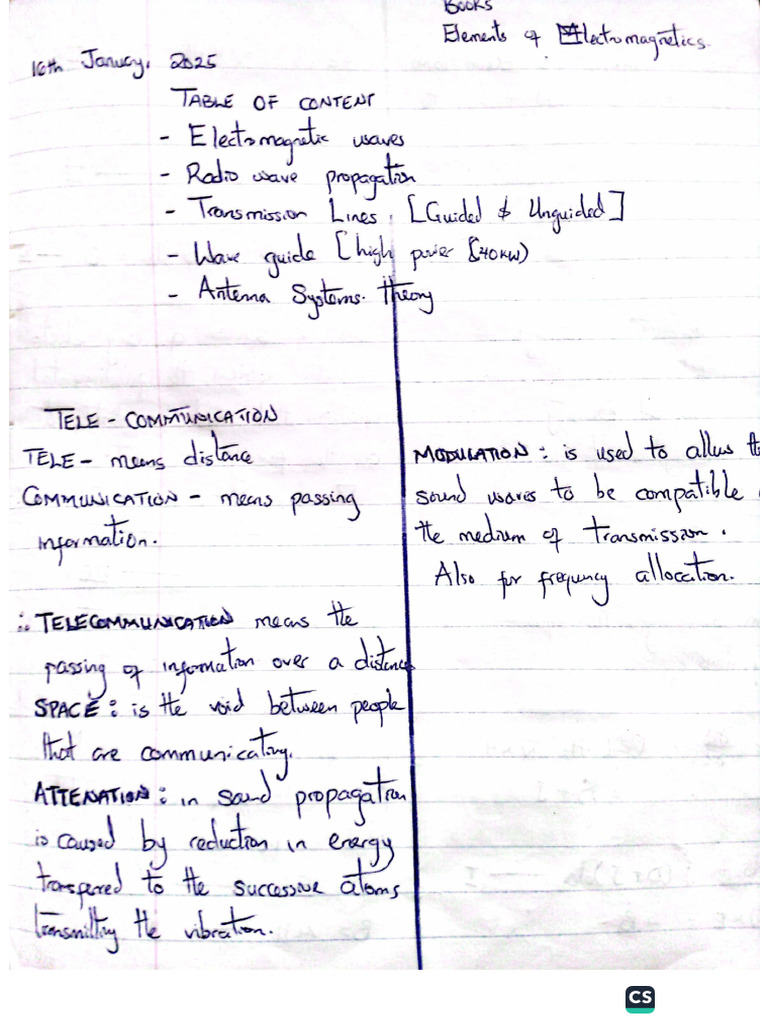 Books
Elements of Electromagnetics.
16th January, 2025
TABLE OF CONTENT
- Electromagnetic waves
- Radio wave propagation
- Transmission Lines. [Guided & Unguided]
- Wave guide [high power (40KW)
- Antenna Systems. theory
TELE - COMMUNICATION
TELE - means distance
COMMUNICATION - means passing
information.
∴ TELECOMMUNICATION means the
passing of information over a distance
SPACE : is the void between people
that are communicating.
ATTENATION : in sound propagation
is caused by reduction in energy
transferred to the successive atoms
transmitting the vibration.
MODULATION : is used to allow
sound waves to be compatible
the medium of transmission.
Also for frequency allocation.
CS